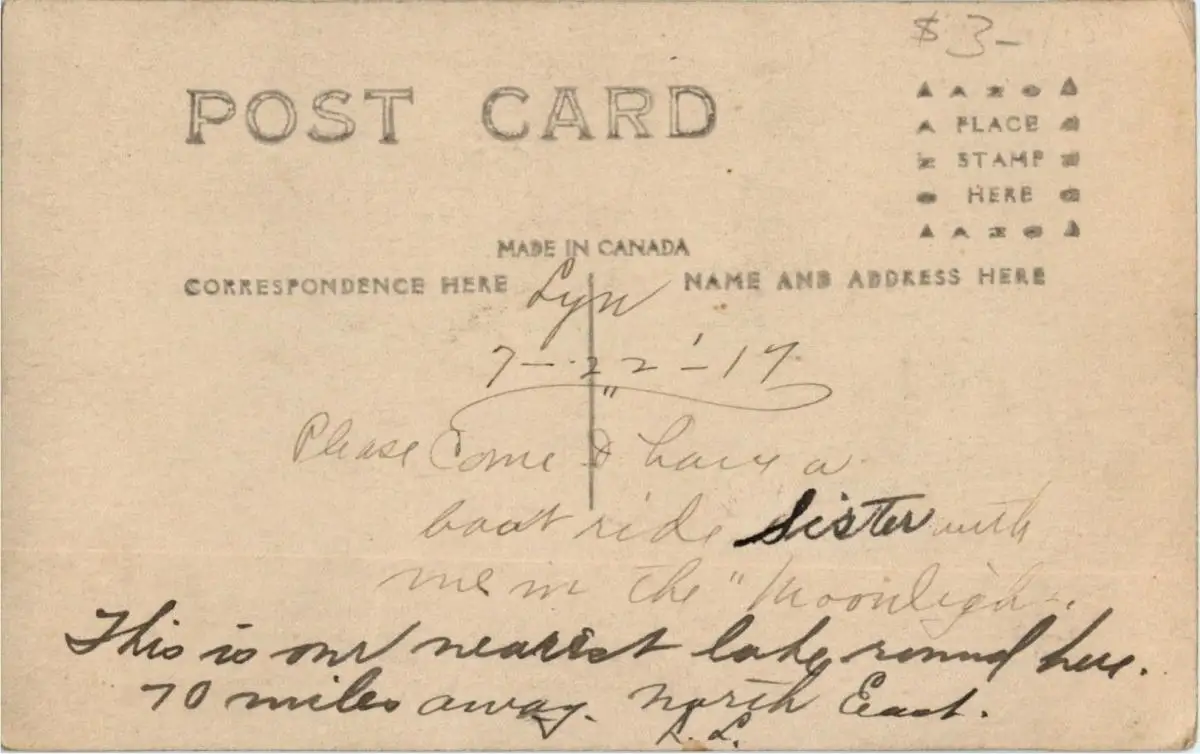 $3-
POST CARD
PLACE
STAMP
HERE
MADE IN CANADA
CORRESPONDENCE HERE
NAME AND ADDRESS HERE
Lyn
7-22'-17
Please Come & have a
boat ride Sister with
me in the "Moonligh-.
This is our nearest lake round here.
70 miles away. North East.
L.